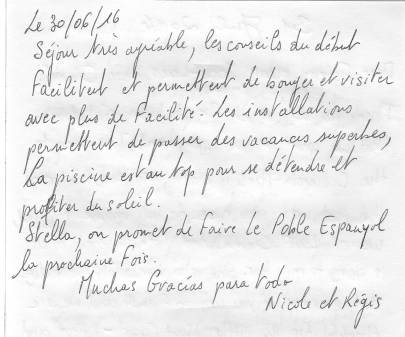 Le 30/06/16
Séjour très agréable, les conseils du début
Facilitent et permettent de bouger et visiter
avec plus de Facilité. Les installations
permettent de passer des vacances superbes,
La piscine est au top pour se détendre et
profiter du soleil.
Stella, on promet de Faire Le Poble Espanyol
la prochaine Fois.
Muchas Gracias para todo
Nicole et Régis